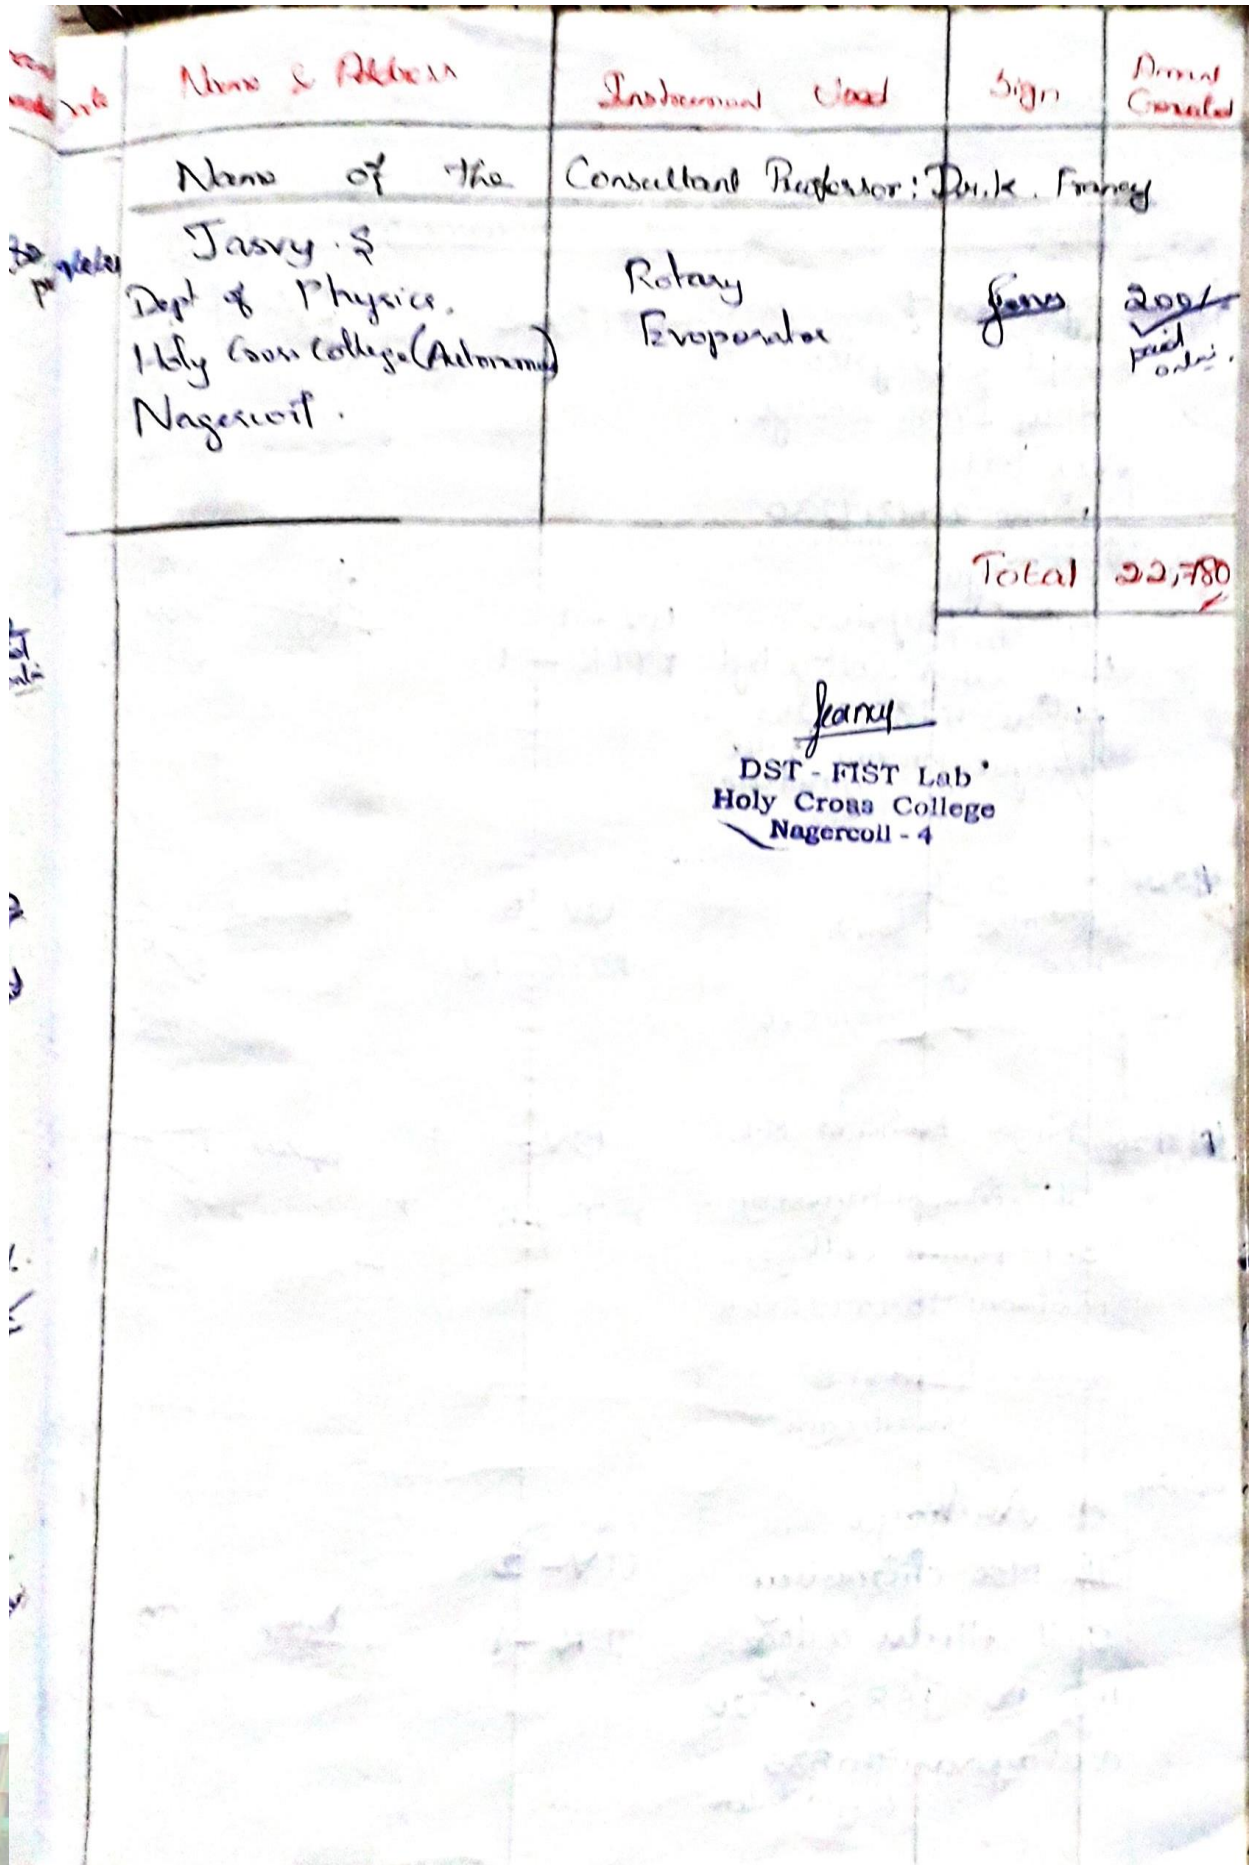 Name & Address Instrument Used Sign Amount Generated
Name of the Consultant Professor: Dr. K. Francy
Jasvy. S
Dept of Physics,
Holy Cross College (Autonomous)
Nagercoil.
Rotary
Evaporator
200/-
paid
Total 22,780
DST - FIST Lab
Holy Cross College
Nagercoil - 4